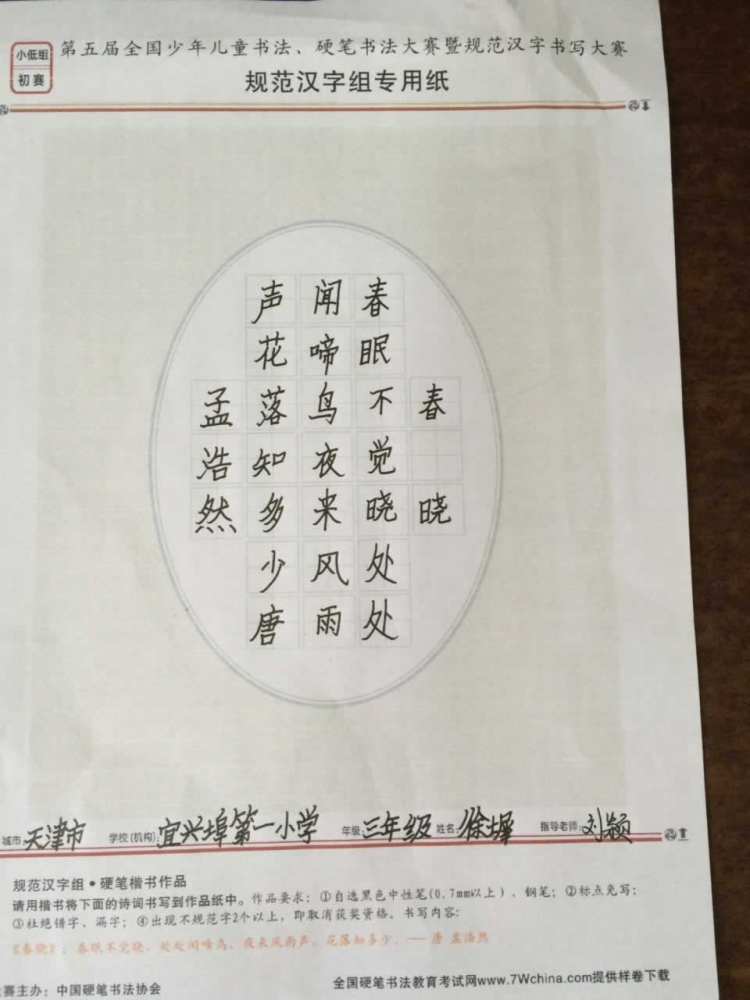 小低组
初赛
第五届全国少年儿童书法、硬笔书法大赛暨规范汉字书写大赛
规范汉字组专用纸
春晓
春眠不觉晓处处
闻啼鸟夜来风雨
声花落知多少唐
孟浩然
城市:天津市 学校(机构):宜兴埠第一小学 年级:三年级 姓名:徐 指导老师:刘颖
规范汉字组•硬笔楷书作品
请用楷书将下面的诗词书写到作品纸中。作品要求：①自选黑色中性笔(0.7mm以上)、钢笔；②标点免写；
③杜绝错字、漏字；④出现不规范字2个以上，即取消获奖资格。书写内容：
《春晓》：春眠不觉晓，处处闻啼鸟。夜来风雨声，花落知多少。——唐 孟浩然
赛主办：中国硬笔书法协会 全国硬笔书法教育考试网www.7Wchina.com提供样卷下载